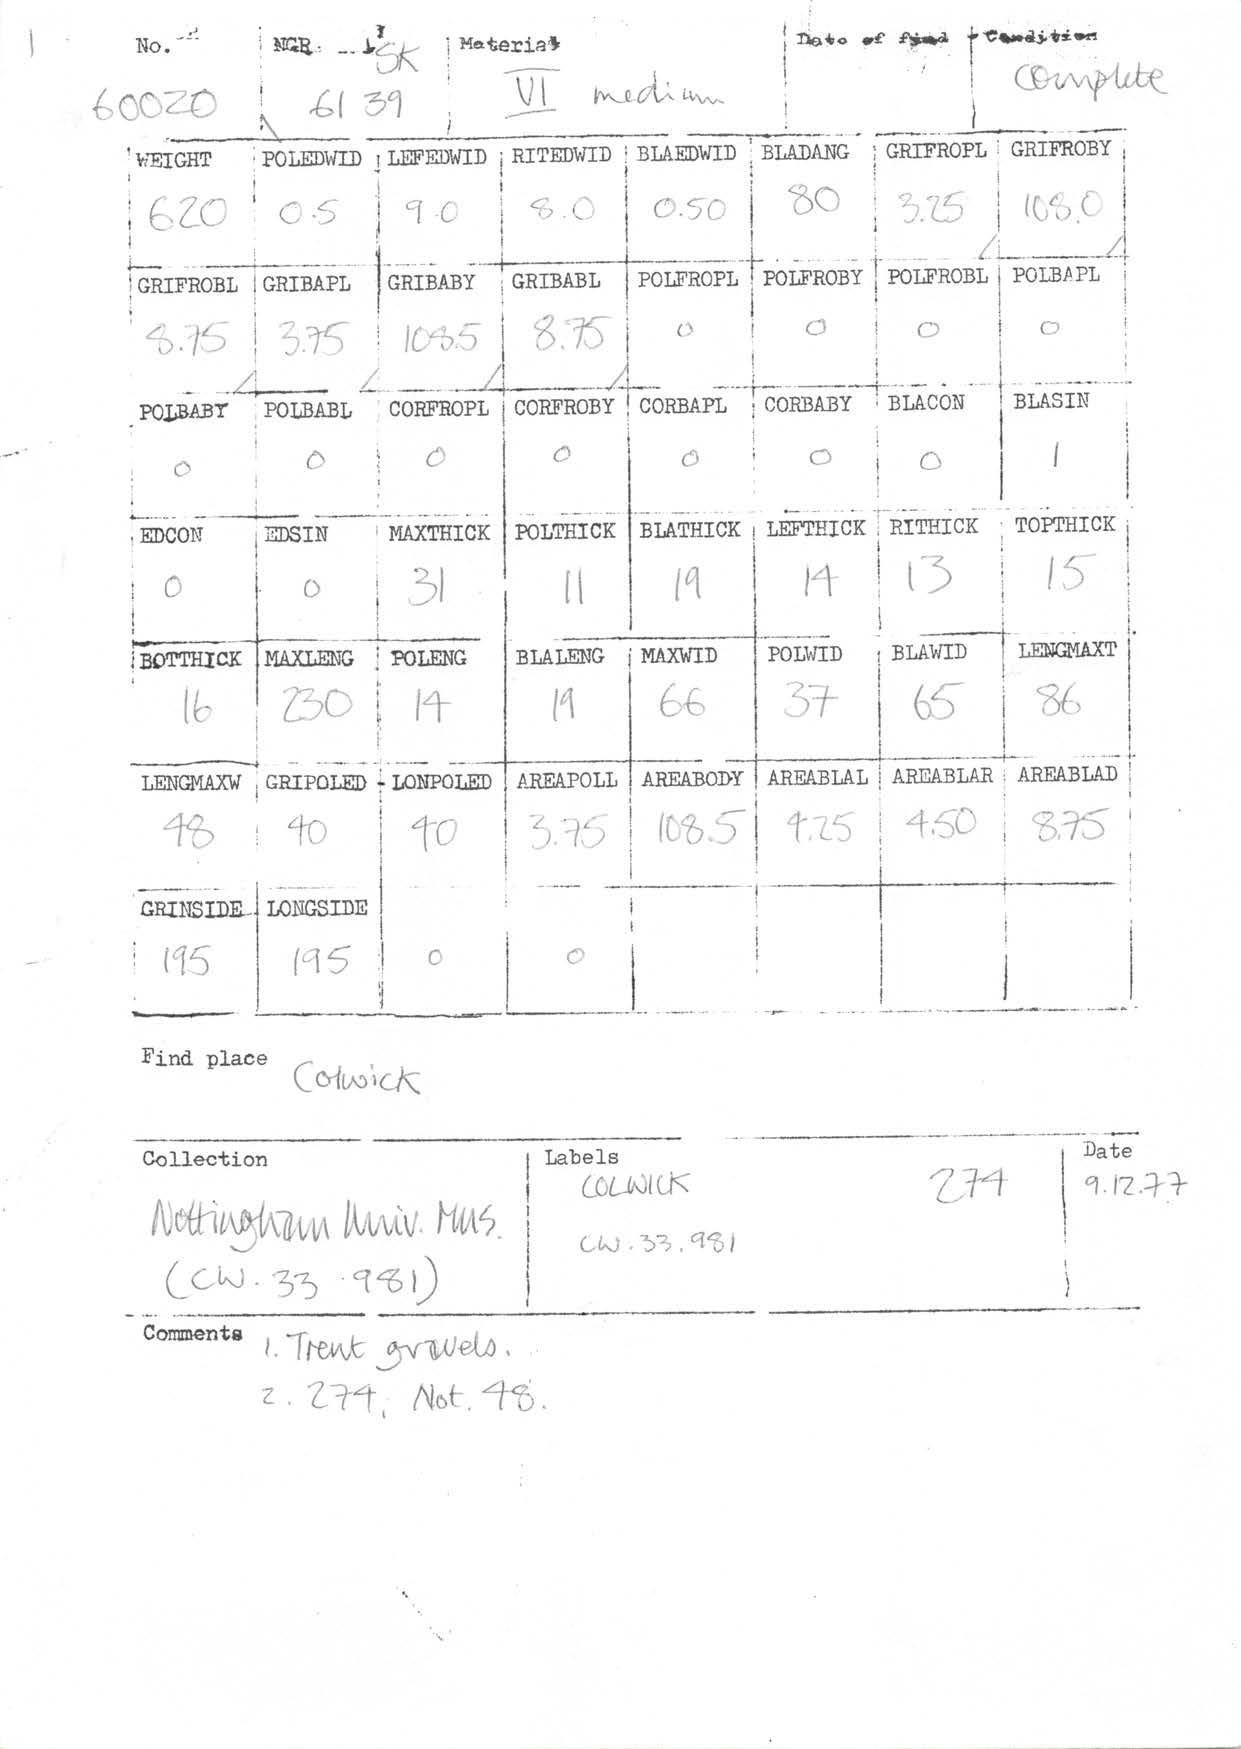 No. NGR. SK Material Date of find Condition
60020 61 39 VI medium complete
WEIGHT POLEDWID LEFEDWID RITEDWID BLAEDWID BLADANG GRIFROPL GRIFROBY
620 0.5 9.0 8.0 0.50 80 3.25 108.0
GRIFROBL GRIBAPL GRIBABY GRIBABL POLFROPL POLFROBY POLFROBL POLBAPL
8.75 3.75 108.5 8.75 0 0 0 0
POLBABY POLBABL CORFROPL CORFROBY CORBAPL CORBABY BLACON BLASIN
0 0 0 0 0 0 0 1
EDCON EDSIN MAXTHICK POLTHICK BLATHICK LEFTHICK RITHICK TOPTHICK
0 0 31 11 19 14 13 15
BOTTHICK MAXLENG POLENG BLALENG MAXWID POLWID BLAWID LENGMAXT
16 230 14 19 66 37 65 86
LENGMAXW GRIPOLED LONPOLED AREAPOLL AREABODY AREABLAL AREABLAR AREABLAD
48 40 40 3.75 108.5 4.25 4.50 8.75
GRINSIDE LONGSIDE
195 195 0 0
Find place Colwick
Collection Labels Date
COLWICK 274 9.12.77
Nottingham Univ. Mus. CW.33.981
(CW.33.981)
Comments 1. Trent gravels.
2. 274, Not. 48.